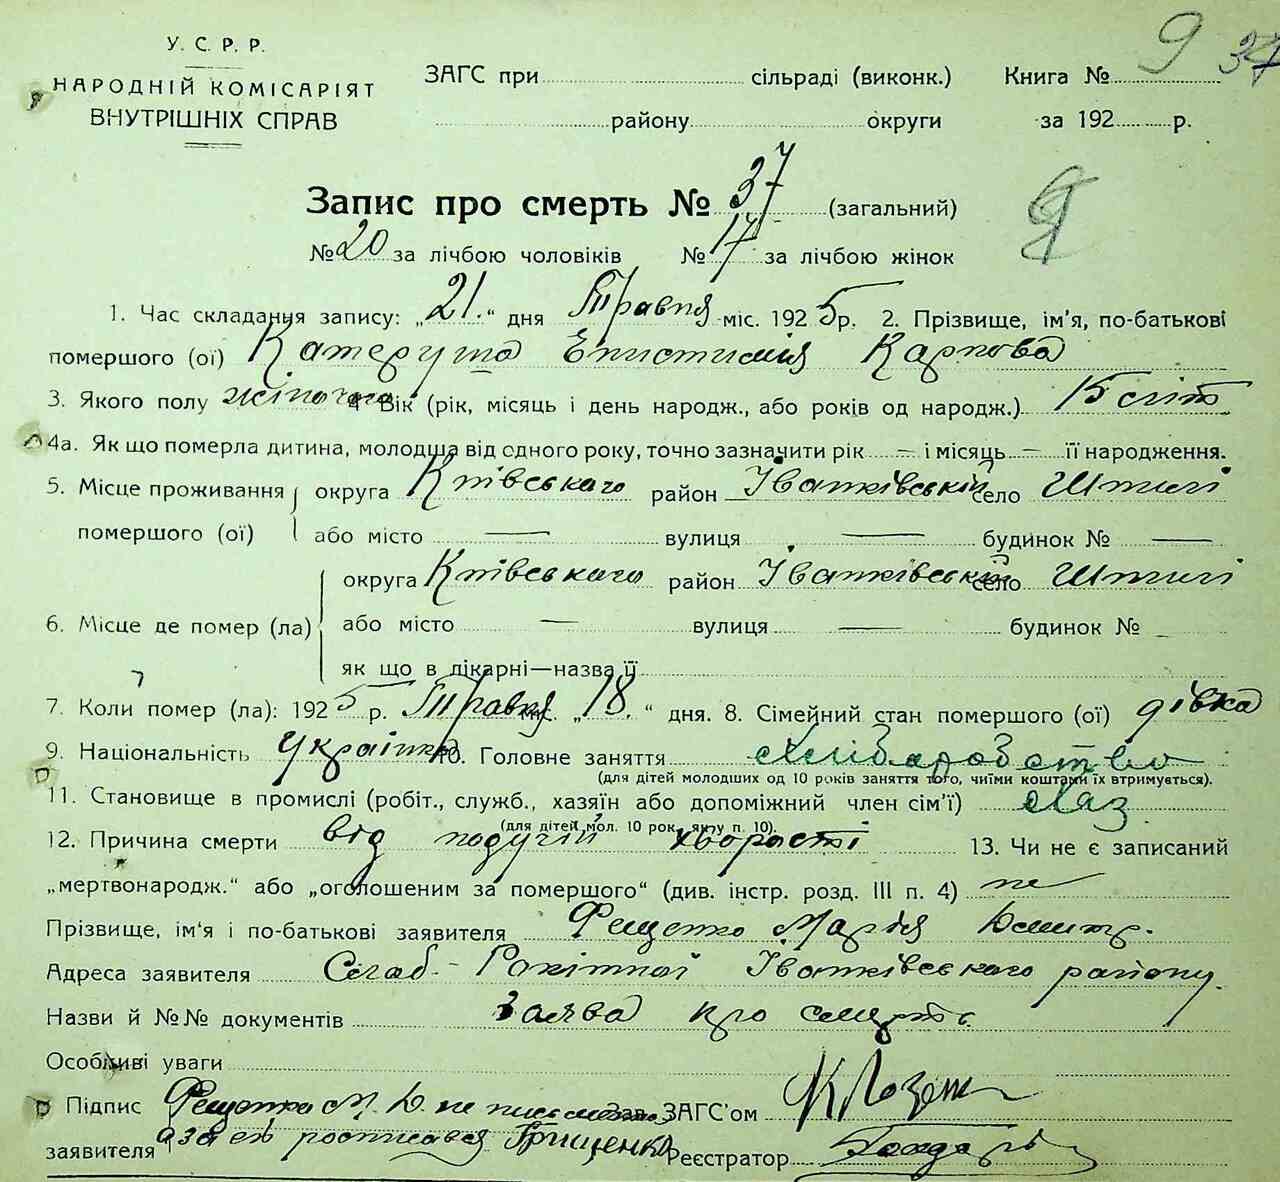 9 37
У. С. Р. Р.
НАРОДНІЙ КОМІСАРІЯТ
ВНУТРІШНІХ СПРАВ
ЗАГС при сільраді (виконк.) Книга №
району округи за 192 р.
Запис про смерть № 37 (загальний)
№ 20 за лічбою чоловіків № 17 за лічбою жінок
1. Час складання запису: „21." дня Травня міс. 1925 р. 2. Прізвище, ім'я, по-батькові
помершого (ої) Катеруша Епистимія Карпова
3. Якого полу жіночого 4. Вік (рік, місяць і день народж., або років од народж.) 15 літ
4а. Як що померла дитина, молодша від одного року, точно зазначити рік — і місяць — її народження.
5. Місце проживання округа Київського район Іванківський село
помершого (ої) або місто — вулиця — будинок № —
округа Київського район Іванківський село
6. Місце де помер (ла) або місто — вулиця — будинок №
як що в лікарні—назва її
7. Коли помер (ла): 1925 р. Травня міс. „18." дня. 8. Сімейний стан помершого (ої) дівка
9. Національність українка 10. Головне заняття хліборобство
(для дітей молодших од 10 років заняття того, чиїми коштами їх втримується).
11. Становище в промислі (робіт., служб., хазяїн або допоміжний член сім'ї) хаз
(для дітей мол. 10 рок, як у п. 10).
12. Причина смерти від падучій хворасті 13. Чи не є записаний
„мертвонародж." або „оголошеним за померщого" (див. інстр. розд. III п. 4) не
Прізвище, ім'я і по-батькові заявителя Фещенко Марія Дмитр.
Адреса заявителя Слаб.- Рокітної Іванківського району.
Назви й №№ документів заява про смерть
Особливі уваги
Підпис Фещенко М. Д. не письменна Зав. ЗАГС'ом
заявителя а за еѣ росписався Грищенко Реєстратор